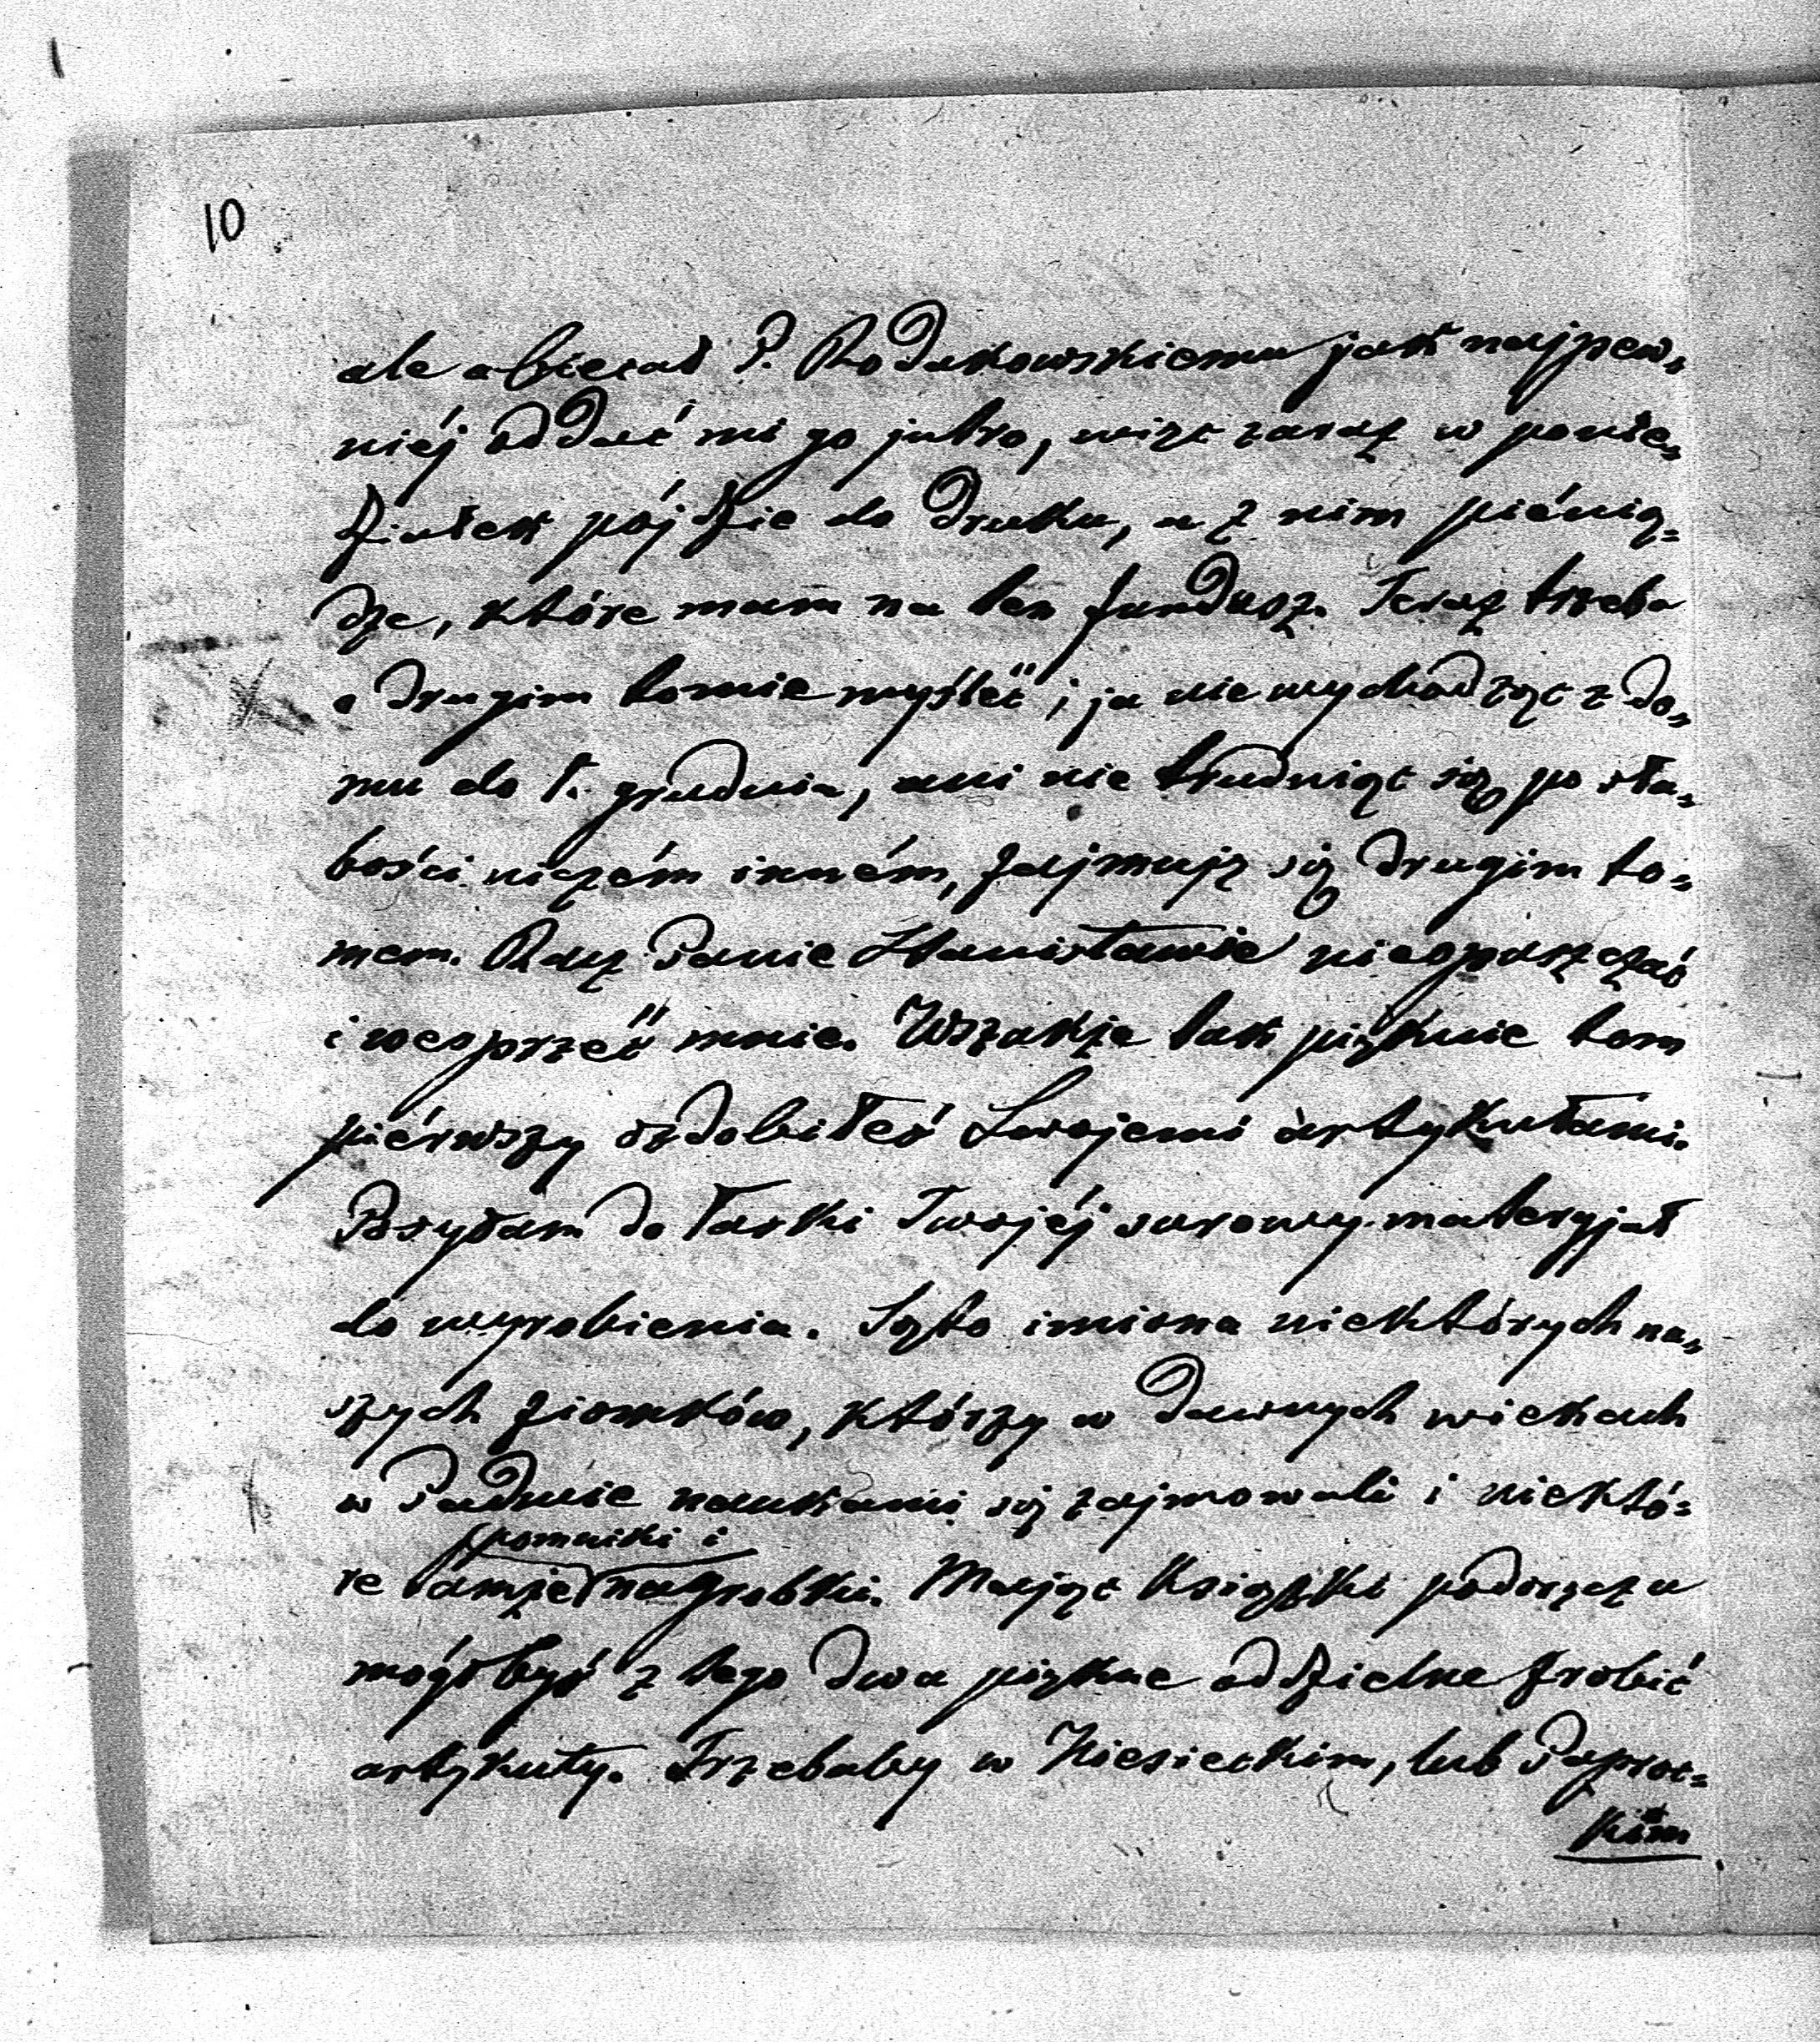 10
ale obiecał P. Rodakowskiemu jak najpew-
niéj oddać mi go jutro, więc zaraz w ponie-
działek pójdzie do druku, a z nim piénią-
dze, które mam na ten fundusz. Teraz trzeba
o drugim tomie myśleć i ja nie wychodząc z do-
mu do 1. grudnia, ani nie trudniąc się po sła-
bości niczém inném, zajmuję się drugim to-
mem. Racz Panie Stanisławie nieopuszczać
i wesprzeć mnie. Wszakże tak pięknie tom
piérwszy ozdobiłeś Swojemi artykułami.
Posyłam do łaski Twojéj surowy materyjał
do wyrobienia. Sąto imiona niektórych na-
szych ziomków, którzy w dawnych wiekach
w Padwie naukami się zajmowali i niektó-
pomniki i
re tamże nagrobki. Mając książki podręczu
mógłbyś z tego dwa piękne oddzielne zrobić
artykuły. Trzebaby w Niesieckim, lub Paproc-
kim